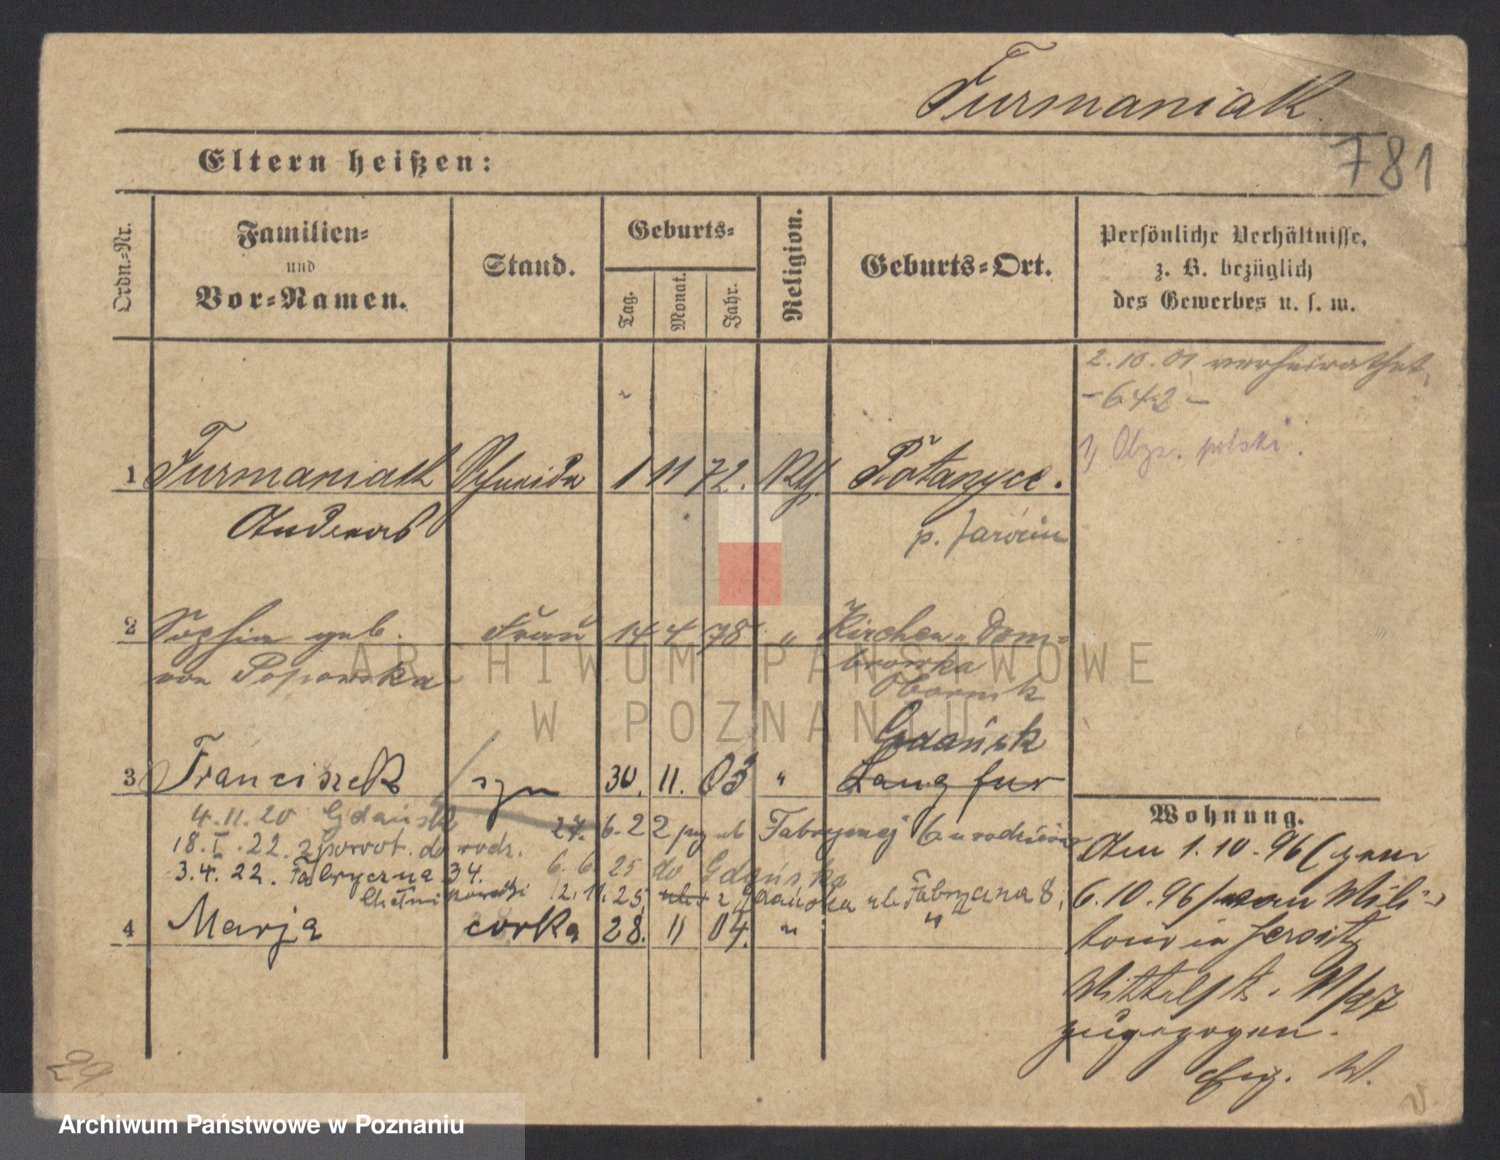 Furmaniak.
781
Eltern heißen:
Ordn.-Nr.
Familien-
und
Vor-Namen.
Stand.
Geburts-
Tag.
Monat.
Jahr.
Religion.
Geburts-Ort.
Persönliche Verhältnisse,
z. B. bezüglich
des Gewerbes u. s. w.
2.10.01 verheirathet.
-642-
Obyw. polski.
1 Furmaniak Schneider 1 11 72. Potarzyce.
Andreas p. Jarocin
2 Sophia geb. Frau 14 4 78 " Kirchen-Dom-
von Popowska browka
Obornik
Gdańsk
3 Franciszek syn 30. 11. 03 " Langfur
4.11.20 Gdańsk 27. 6. 22 Fabrycznej 6 u rodziców
18.I.22. z powrot. do rodz. 6.6.25 do Gdańska
3.4.22. Fabryczna 34. 12.11.25. z Gdańska ul. Fabryczna 8.
4 Marja córka 28. 11 04. " "
Wohnung.
Am 1.10.96 (gem
6.10.96) vom Mili-
tair in Jersitz
zugezogen.
W.
29
ARCHIWUM PAŃSTWOWE
W POZNANIU
Archiwum Państwowe w Poznaniu